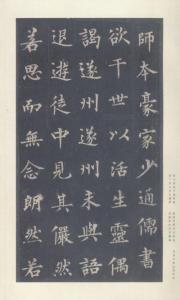 師本豪家少通儒書
欲干世以活生靈偶
謁遂州遂州未與語
退遊徒中見其儼然
若思而無念朗然若